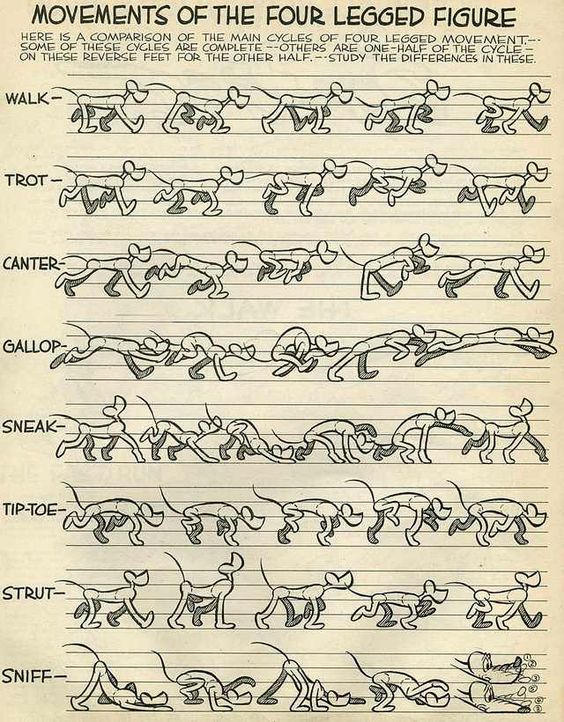 MOVEMENTS OF THE FOUR LEGGED FIGURE
HERE IS A COMPARISON OF THE MAIN CYCLES OF FOUR LEGGED MOVEMENT--
SOME OF THESE CYCLES ARE COMPLETE -- OTHERS ARE ONE-HALF OF THE CYCLE -
ON THESE REVERSE FEET FOR THE OTHER HALF. -- STUDY THE DIFFERENCES IN THESE.
WALK-
TROT-
CANTER-
GALLOP-
SNEAK-
TIP-TOE-
STRUT-
SNIFF-